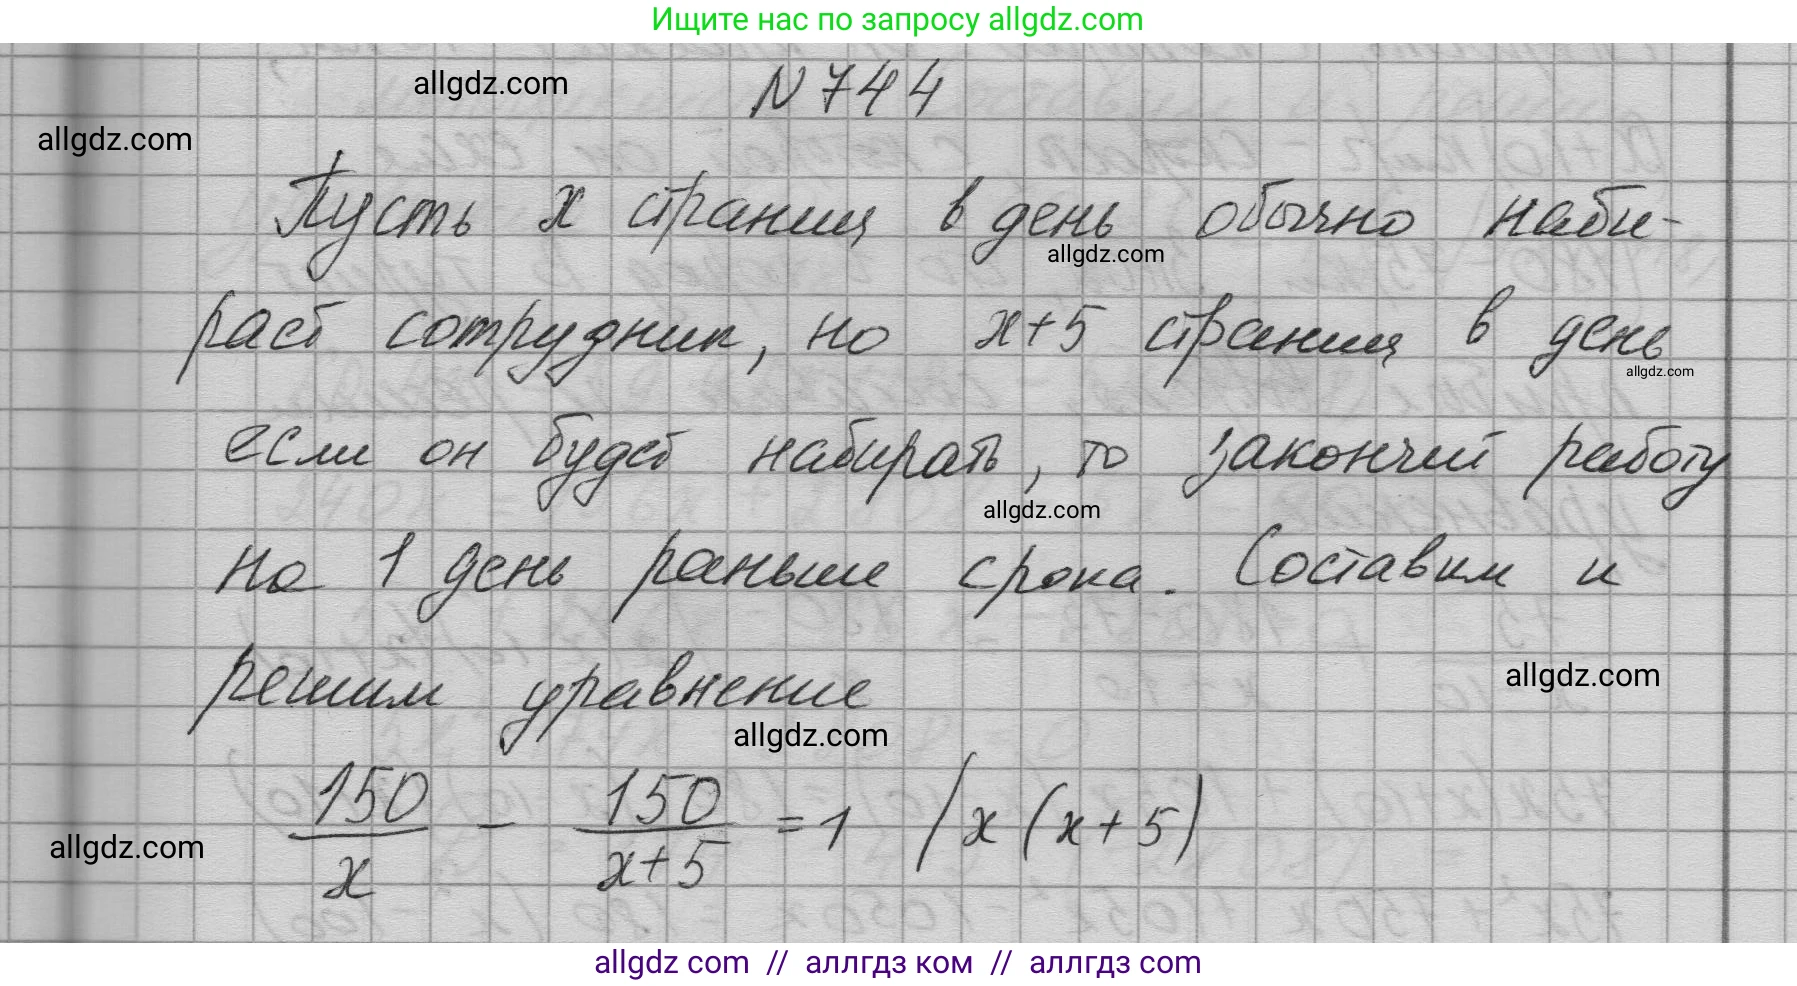 Ищите нас по запросу allgdz.com
allgdz.com
N 744
allgdz.com
Пусть x страниц в день обычно наби-
allgdz.com
рает сотрудник, но x+5 страниц в день
allgdz.com
если он будет набирать, то закончит работу
allgdz.com
на 1 день раньше срока. Составим и
решим уравнение
allgdz.com
allgdz.com
150/x - 150/(x+5) = 1 / x(x+5)
allgdz.com
allgdz com // аллгдз ком // аллгдз com